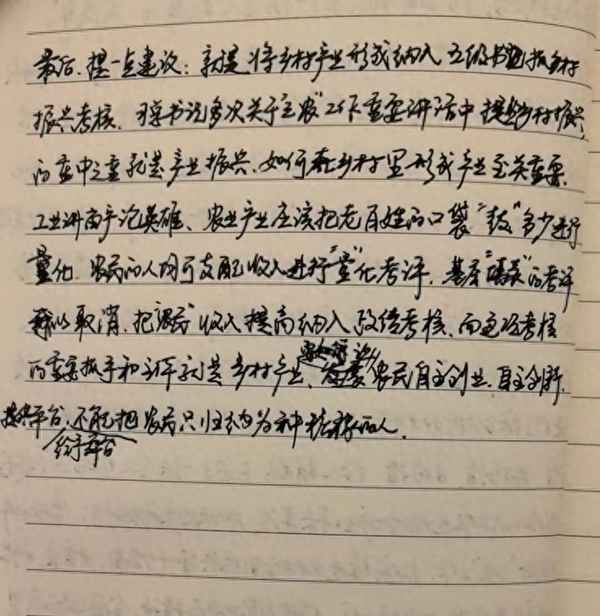 最后,提一点建议:就是将乡村产业形成纳入五级书记抓乡村
振兴考核,习总书记多次关于"三农"工作重要讲话中提到乡村振兴
的重中之重就是产业振兴、如何在乡村里形成产业至关重要,
工业讲亩产论英雄、农业产业应该把老百姓的口袋"鼓"多少进行
量化,农民的人均可支配收入进行"量"化考评,基层的考评
可以取消,把农民收入提高纳入政绩考核,而这项考核
的重要抓手和主体就是乡村产业、农民自主创业、自主创新,
提供平台,不能把农民只归纳为种粮食的人.
给予平台